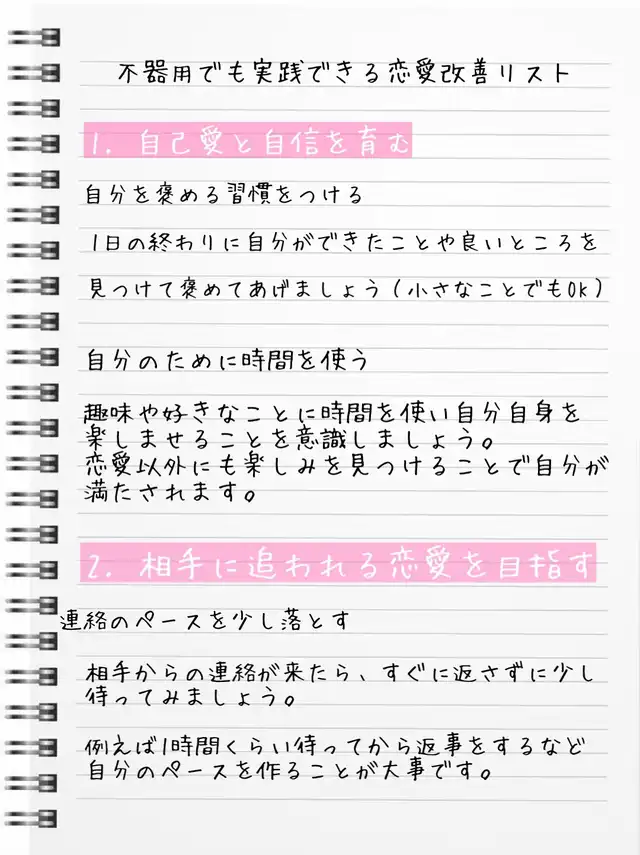 不器用でも実践できる恋愛改善リスト
1. 自己愛と自信を育む
自分を褒める習慣をつける
1日の終わりに自分ができたことや良いところを
見つけて褒めてあげましょう（小さなことでもOK）
自分のために時間を使う
趣味や好きなことに時間を使い自分自身を
楽しませることを意識しましょう。
恋愛以外にも楽しみを見つけることで自分が
満たされます。
2. 相手に追われる恋愛を目指す
連絡のペースを少し落とす
相手からの連絡が来たら、すぐに返さずに少し
待ってみましょう。
例えば1時間くらい待ってから返事をするなど
自分のペースを作ることが大事です。